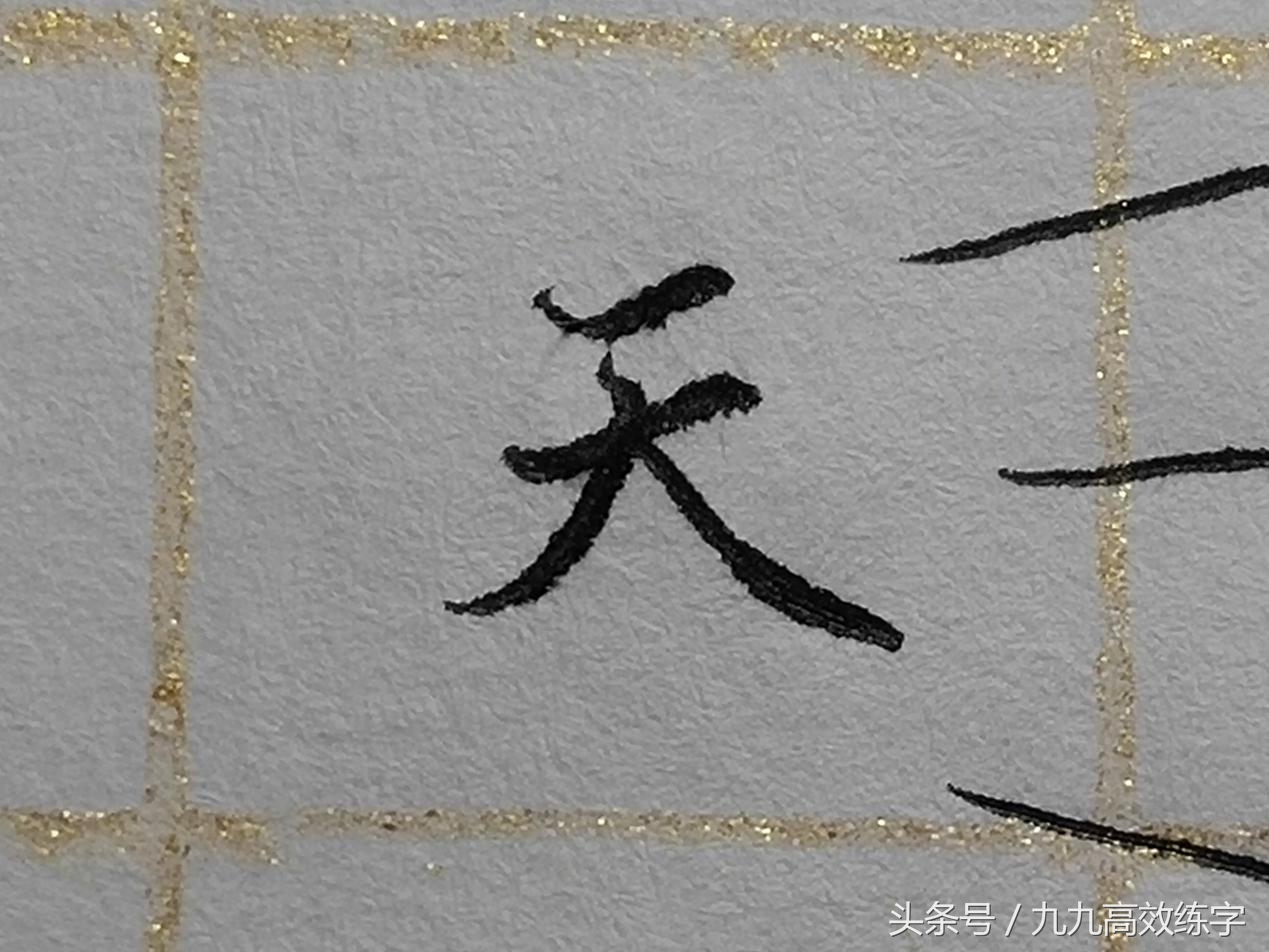 天
头条号 / 九九高效练字